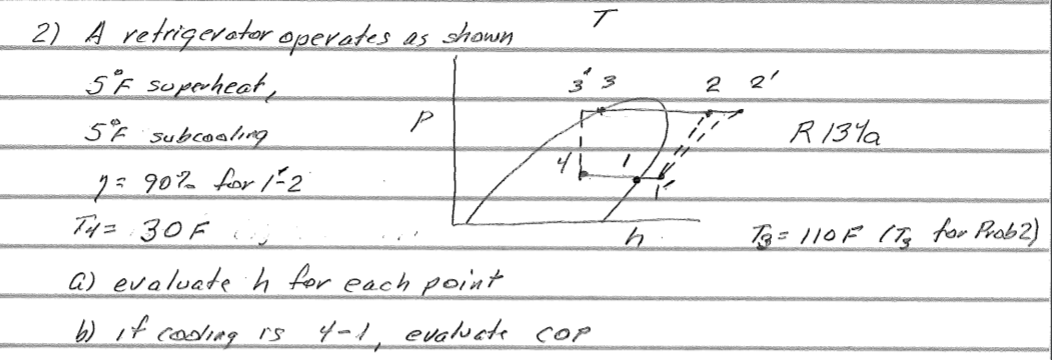 T
2) A refrigerator operates as shown
5°F superheat,
3' 3 2 2'
P
R 134a
5°F subcooling
4 1
1'
η = 90% for 1'-2
T4 = 30F
h
T3 = 110F (T3 for Prob2)
a) evaluate h for each point
b) if cooling is 4-1, evaluate COP